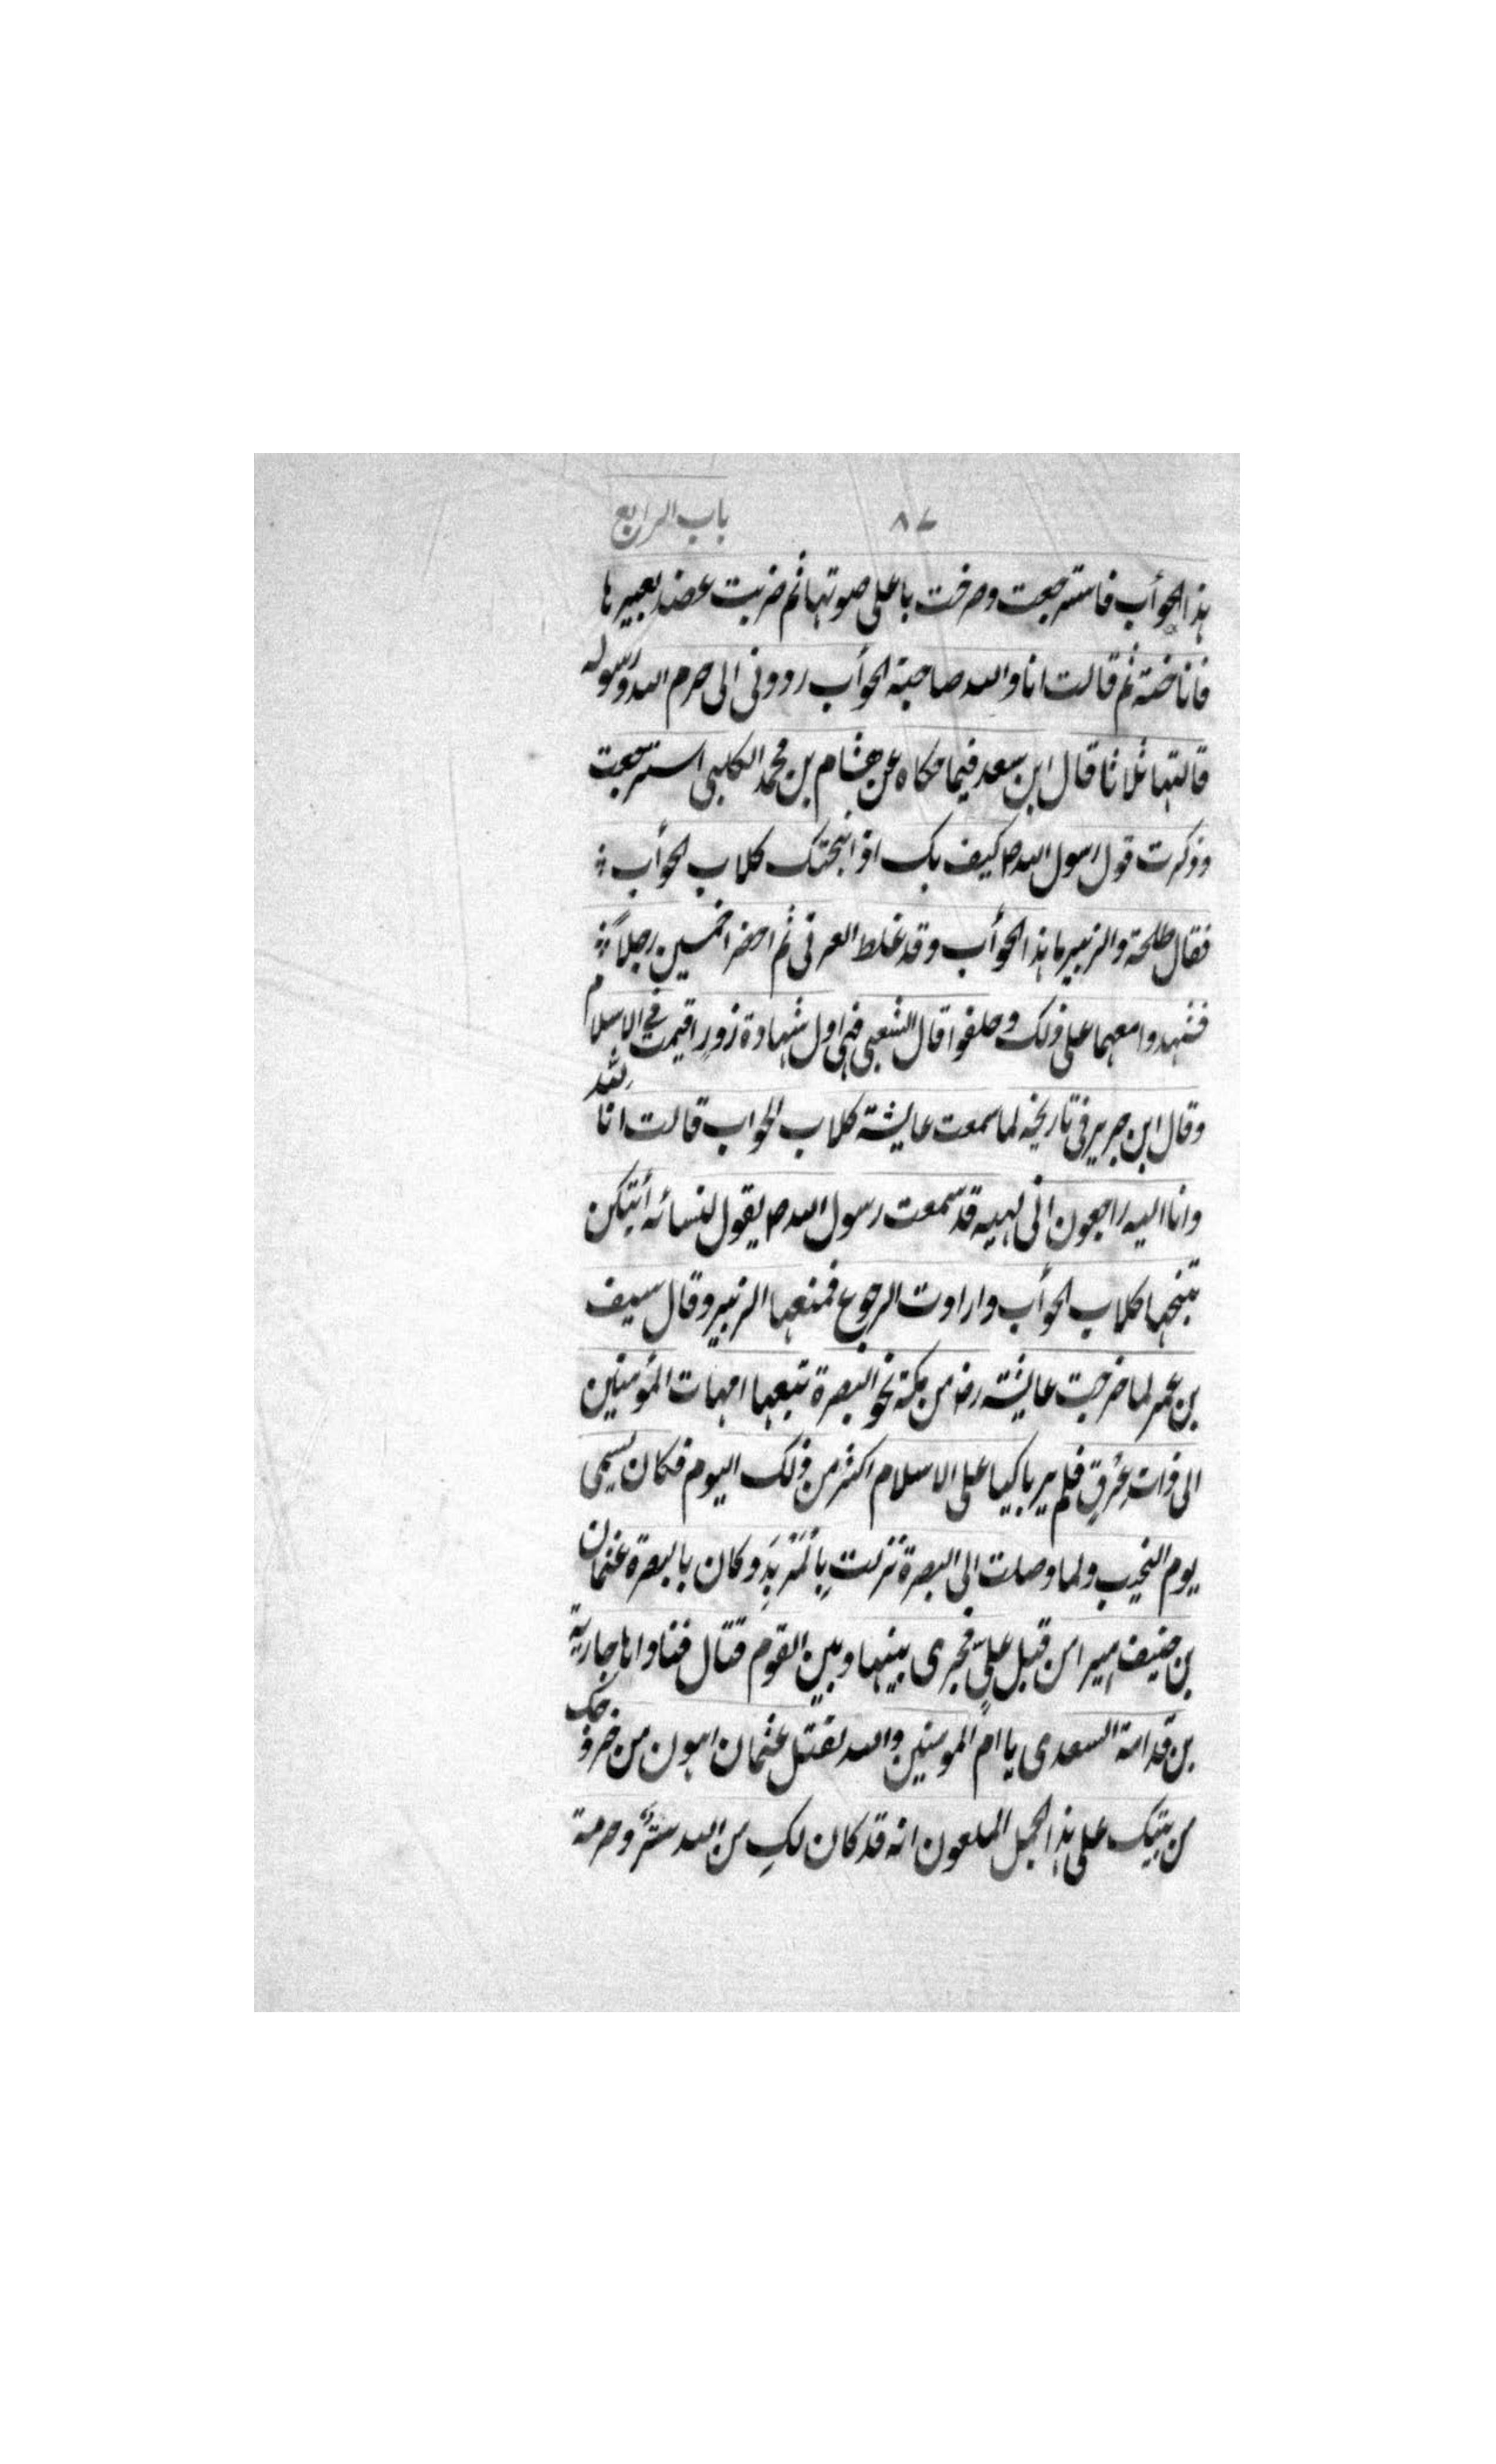 ٨٧ باب الرابع
هذا الحوأب فاسترجعت وصرخت باعلى صوتها ثم ضربت عضد بعيرها
فاناخته ثم قالت انا والله صاحبة الحوأب ردوني الى حرم الله ورسوله
قالتها ثلاثا قال ابن سعد فيما حكاه عن هشام بن محمد الكلبي استرجعت
وذكرت قول رسول الله ص كيف بك اذا نبحتك كلاب الحوأب
فقال طلحة والزبير ما هذا الحوأب وقد غلط العرني ثم احضرا خمسين رجلاً
فشهدوا معهما على ذلك وحلفوا قال الشعبي فهي اول شهادة زورٍ اقيمت في الاسلام
وقال ابن جرير في تاريخه لما سمعت عايشة كلاب الحواب قالت انا لله
وانا اليه راجعون اني لهيه قد سمعت رسول الله ص يقول لنسائه أيتكن
تنبحها كلاب الحوأب وارادت الرجوع فمنعها الزبير وقال سيف
بن عمر لما خرجت عايشة رض من مكة نحو البصرة تبعها امهات المؤمنين
الى ذات عرق فلم ير باكيا على الاسلام اكثر من ذلك اليوم فكان يسمى
يوم النحيب ولما وصلت الى البصرة نزلت بالمربد وكان بالبصرة عثمان
بن حنيف اميرا من قبل عليٍّ فجرى بينها وبين القوم قتال فناداها جارية
بن قدامة السعدى يا ام المومنين والله لقتل عثمان اهون من خروجك
من بيتك على هذا الجمل الملعون انه قد كان لكِ من الله سترٌ وحرمة